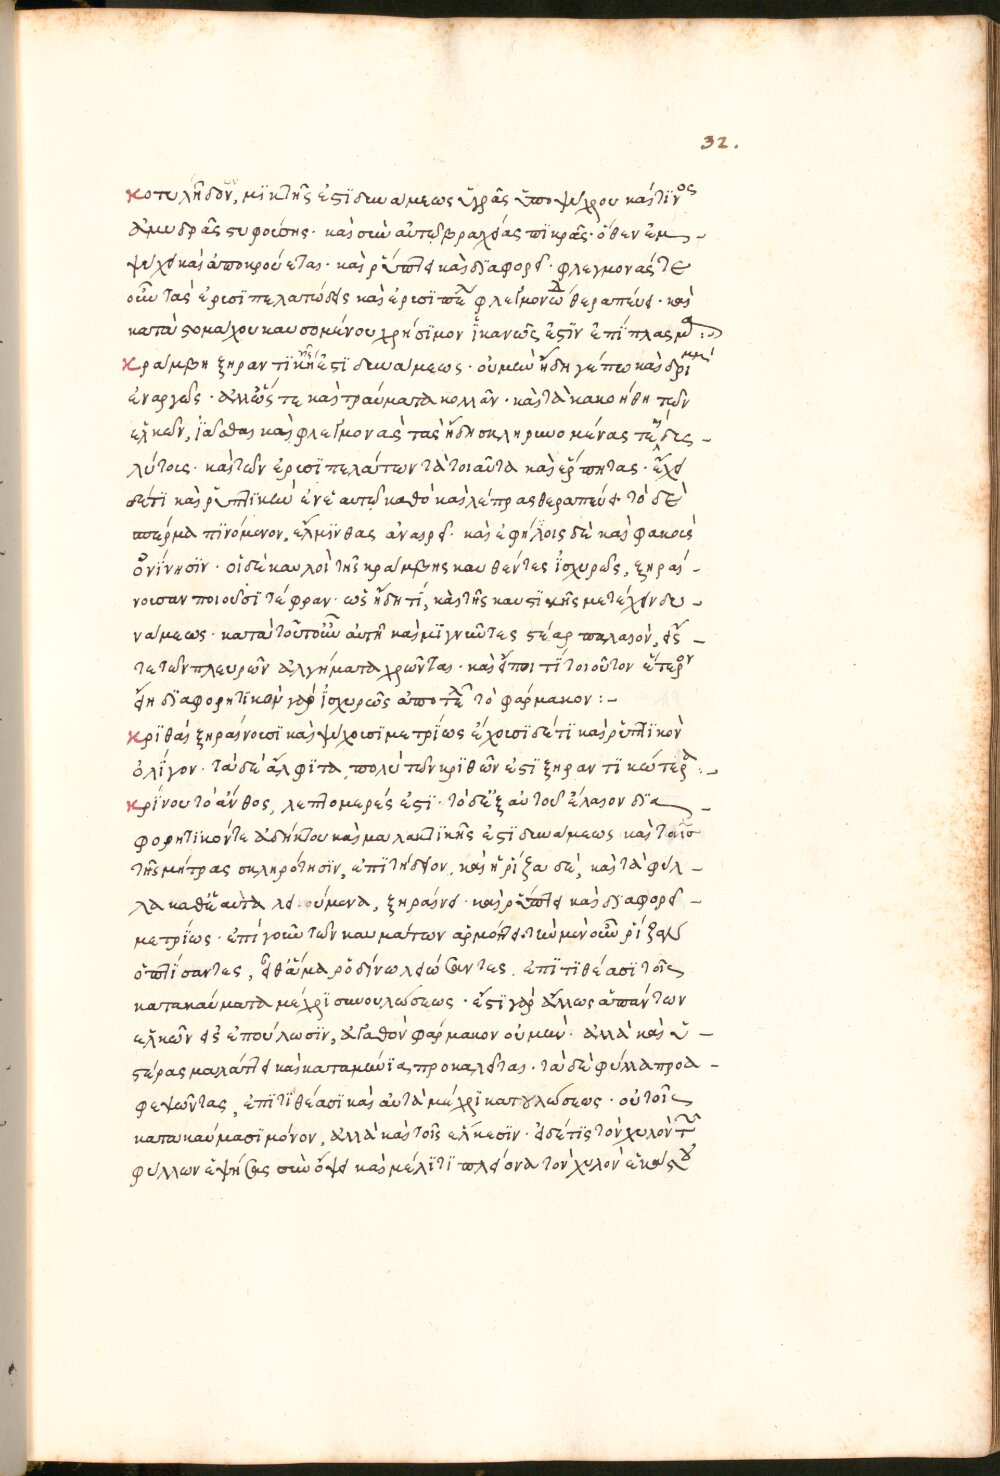 32.
κοτυληδὼν, μϊκτῆς ἐςϊ δυνάμεως ὑγρᾶς ὑποψύχρου καί τϊνος
ἀμυδρᾶς ςυφούσης· καὶ σὺν αὐτῶ βραχείας πϊκρᾶς· ὅθεν ἐμ-
ψύχει καὶ ἀποκρούεται· καὶ ῥύπτει καὶ δϊαφορεῖ· φλεγμονάς τε
οὖν τὰς ἐρυσϊπελατώδεις καὶ ἐρυσϊπέλατα φλεγμονώδη θεραπεύει· καὶ
κατὰ ςομάχου καυσομένου χρήσϊμον ἱκανῶς ἐςϊν ἐπίπλασμα:-
κράμβη ξηραντϊκῆς ἐςϊ δυνάμεως· οὐ μὴν ἤδη γέ πω καὶ δριμείας
ἐναργῶς· ἀλλ' ὥςτε καὶ τραύματα κολλᾶν· καὶ τὰ κακοήθη τῶν
ἑλκῶν, ἰᾶσθαι καὶ φλεγμονὰς τὰς ἤδη σκληρυνομένας τε δυς-
λύτους· καὶ τῶν ἐρυσϊπελάτων τὰ τοιαῦτα καὶ ἕρπητας· ἔχει
δέ τϊ καὶ ῥυπτϊκὸν ἐν ἑαυτῶ καθὸ καὶ λέπρας θεραπεύει· τὸ δὲ
σπέρμα πϊνόμενον, ἕλμϊνθας ἀναιρεῖ· καὶ ἐφήλοις δὲ καὶ φακοὺς
ὀνίνησϊν· οἱ δὲ καυλοὶ τῆς κράμβης καυθέντες ἰσχυρῶς, ξηραί-
νουσαν ποιοῦσϊ τέφραν· ὡς ἤδη τί, καὶ τῆς καυςϊκῆς μετέχειν δυ-
νάμεως· κατὰ τοῦτο οὖν αὐτῆ καὶ μϊγνῦντες ςέαρ παλαιὸν, εἴς
τε τῶν πλευρῶν ἀλγήματα χρῶνται· καὶ εἴ που τί τοιοῦτον ἕτερον
εἴη δϊαφορητϊκὸν γὰρ ἰσχυρῶς ἀποτελεῖ τὸ φάρμακον:-
κρϊθαὶ ξηραίνουσϊ καὶ ψύχουσϊ μετρίως ἔχουσϊ δέ τϊ καὶ ῥυπτϊκὸν
ὀλίγον· τὰ δὲ ἄλφϊτα, πολὺ τῶν κρϊθῶν ἐςϊ ξηραντϊκώτερα:-
κρίνου τὸ ἄνθος, λεπτομερές ἐςϊ· τὸ δὲ ἐξ αὐτοῦ ἔλαιον δϊα-
φορητϊκόν τε ἀδήκτου καὶ μαλακτϊκῆς ἐςϊ δυνάμεως καὶ ταῖς
τῆς μήτρας σκληρότησϊν, ἐπϊτήδειον, καὶ ἡ ῥίζα δὲ, καὶ τὰ φύλ-
λα καθ' αὑτὰ λειούμενα, ξηραίνει· καὶ ῥύπτει καὶ δϊαφορεῖ
μετρίως· ἐπὶ γοῦν τῶν καυμάτων ἁρμόττει· τὴν μὲν οὖν ῥίζαν
ὀπτήσαντες, εἶθ' ἅμα ῥοδίνω λειώσαντες, ἐπϊτϊθέασϊ τοῖς
κατακαύματα μέχρϊ συνουλώσεως· ἔςϊ γὰρ ἄλλως ἁπάντων
ἑλκῶν εἰς ἐπούλωσϊν, ἀγαθὸν φάρμακον οὐ μὴν· ἀλλὰ καὶ ὑ-
ςέρας μαλάττει καὶ καταμήνϊα προκαλεῖται· τὰ δὲ φύλλα προα-
φεψῶνται, ἐπϊτϊθέασϊ καὶ αὐτὰ μέχρϊ κατουλώσεως· οὐ τοῖς
κατακαύμασϊ μόνον, ἀλλὰ καὶ τοῖς ἕλκεσϊν· εἰ δέ τϊς τὸν χυλὸν τῶν
φύλλων ἑψήσας σὺν ὄξει καὶ μέλϊτϊ πλείονα τὸν χυλὸν ἑκάςου